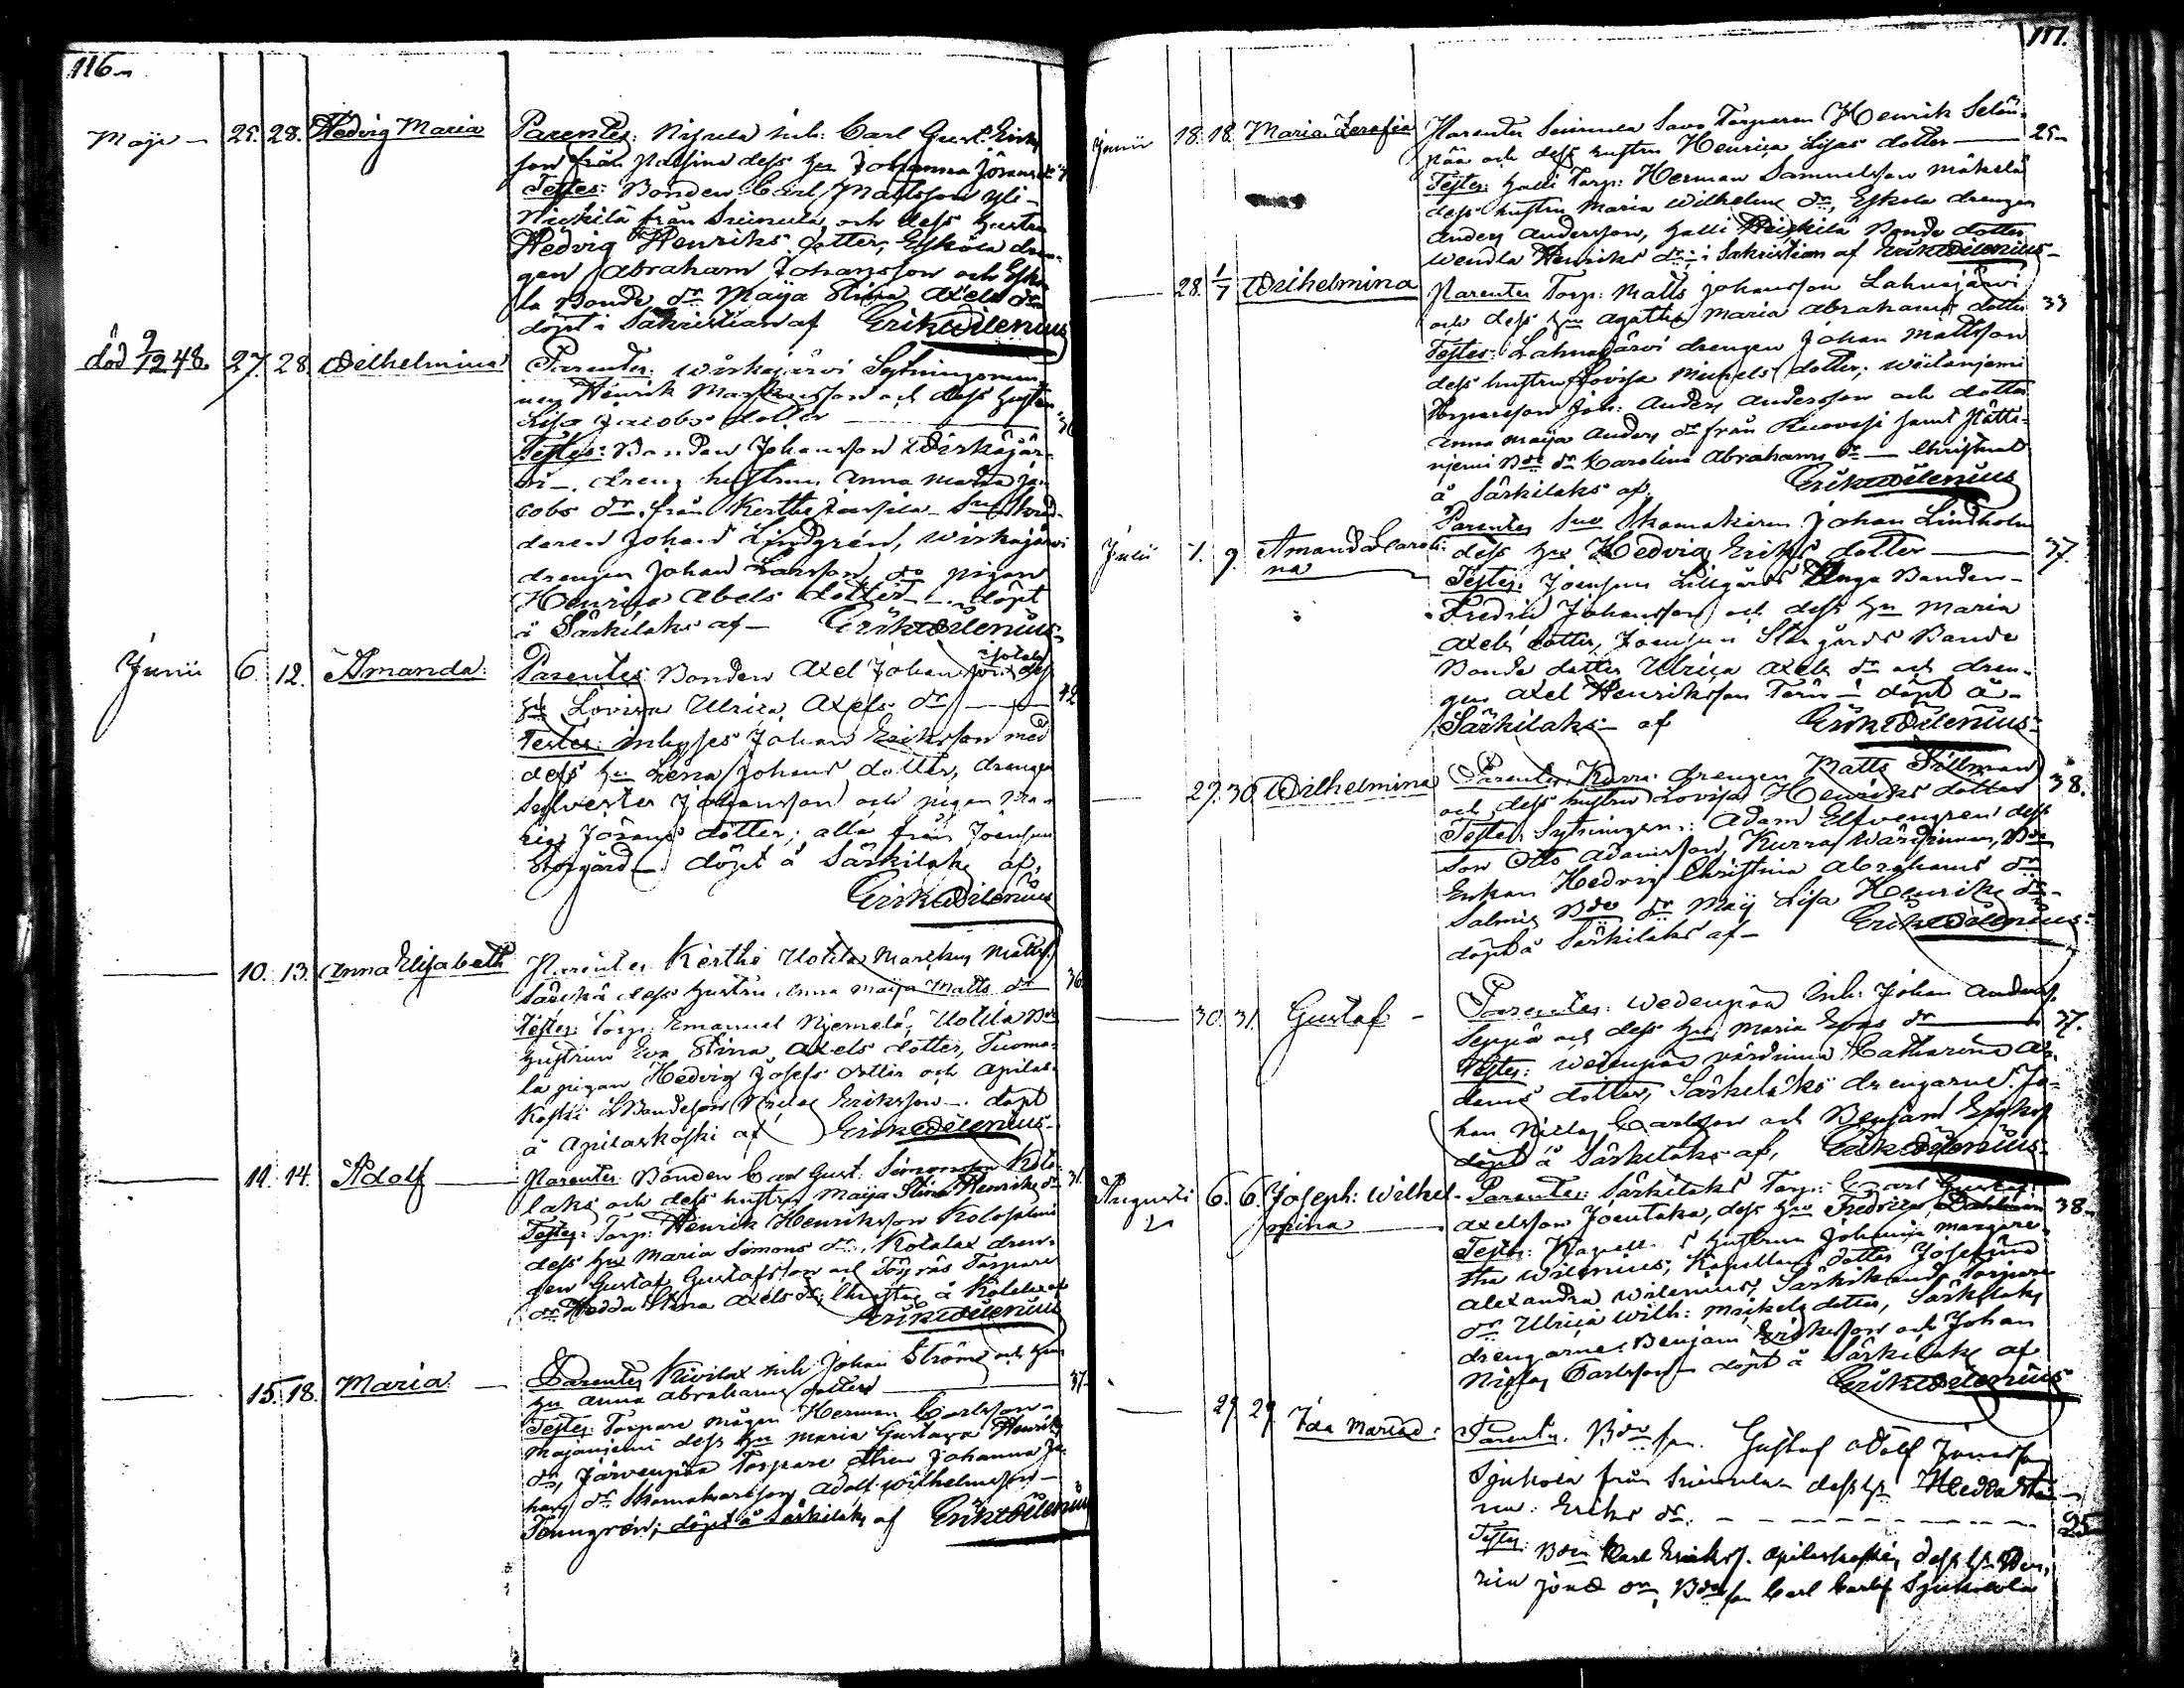 116
Maji – 25. 28. Hedvig Maria Parentes: inh: Carl Gust. Erik
son från dess Johanna Jörans
Testes: Bonden Carl Mattsson Yli-
från och dess hustru
Hedvig Henriks dotter, Eskola dren-
gen Abraham Johansson och Esko
la Bonde dr Maija Stina Axels dr
döpt i Sakristian af Erik Wilenius
död 9/12 48. 27. 28. Wilhelmina Parentes: Wirkajärvi Sytningsman
nen Henrik Markusson och dess hustru
Lisa Jacobs dotter
Testes: Bonden Johansson Wirkajär-
vi – dreng hustrun Anna Maria Ja-
cobs dr från Kertbe
daren Johan Lindgrén, Wirkajärvi
drengen Johan Larsson, do pigan
Henrica Abels dotter – döpt
å Särkilaks af – Erik Wilenius
Junii 6. 12. Amanda: Parentes: Bonden Axel Johan
Lovisa Ulrica Axels dr 42
Testes: inhyses Johan Eriksson med
dess hu Lena Johans dotter, drengen
Sylvester Johansson och pigan Ma-
ria Jörans dotter; alla från Joensuu
Storgård – döpt å Särkilaks af,
Erik Wilenius
10. 13. Anna Elisabeth Parentes Kerthe Uotila Markus Matts. 36
dess hustru Anna Maija Matts dr
Testes: Torp: Emanuel Njemelä, Uotila Bde
hustrun Eva Stina Axels dotter, Tuoma-
la pigan Hedvig Josefs dotter och Apilas-
koski Bondeson Niclas Eriksson – döpt
å Apilaskoski af Erik Wilenius
11. 14. Adolf Parentes Bonden Carl Gust. Simonsson Kola- 31
laks och dess hustru Maija Stina Henriks dr
Testes: Torp: Henrik Henriksson Kolosalmi
dess hu Maria Simons dr, Kolalax dren-
gen Gustaf Gustafsson och Töyräs Torpare
dr Hedda Stina Axels dr; Christnad å Kolalax af
Erik Wilenius
15. 18. Maria. Parentes Kivilax inh: Johan Ström och hans 37
hu Anna Abrahams dotter
Testes: Torpare mågen Herman Carlsson
Majaniemi dess hu Maria Gustava Henriks
dr, Järvenpää Torpare Johanna Jo-
hans dr Skomakarsson Adolf Wilhelmsson
Tenngrén; döpt å Särkilaks af Erik Wilenius
117.
Junii 18. 18. Maria Serafia Parentes Suinula Savo Torparen Henrik Selän- 25
pää och dess hustru Henrica Lisas dotter
Testes: Halli Torp: Herman Samuelsson Mäkelä
dess hustru Maria Wilhelms dr, Eskola drengen
Anders Andersson, Halli Heickilä Bonde dotter
Wendla Henriks dr; i Sakristian af Erik Wilenius
28. 1/7 Wilhelmina Parentes Torp: Matts Johansson Lahnajärvi
och dess hu Agatha Maria Abrahams dotter 33
Testes: Lahnajärvi drengen Johan Mattsson
dess hustru Lovisa Michels dotter, Wiitaniemi
Torparesson Joh: Anders Andersson och dotter
Anna Maija Anders dr från Ruovesi samt Pätti-
njemi Bde dr Karolina Abrahams dr – Christnad
å Särkilaks af Erik Wilenius
Julii 1. 9. Amanda Caroli- Parentes Skomakaren Johan Lindholm
na dess hu Hedvig Eriks dotter 37.
Testes: Joensuu Lillgårds Unga Bonden
Fredrik Johansson och dess hu Maria
Axels dotter, Joensuu Storgårds Bonde
Bonde dotter Ulrica Axels dr och dren-
gen Axel Henriksson Törn – döpt å
Särkilaks – af Erik Wilenius
29. 30 Wilhelmina Parentes, Kurra drengen Matts Tillman
och dess hustru Lovisa Henriks dotter 38.
Testes: Sytningsm: Adam Elfvengren dess
son Otto Adamsson, Kurra Wärdinnan, Bde
Enkan Hedvig Christina Abrahams dr
Salmis Bde dr Maij Lisa Henriks dr
döpt å Särkilaks af – Erik Wilenius
30. 31. Gustaf Parentes: Wedenpää Inh: Johan Anders.
Seppä och dess hu Maria Evas dr 37.
Testes: Wedenpää värdinna Catharina A-
dams dotter, Särkilaks drengarne Jo-
han Niclas Carlsson och Benjam Eriks
döpt å Särkilaks af, Erik Wilenius
Augusti 6. 6. Joseph: Wilhel- Parentes: Särkilaks Torp: Carl Gustaf
mina Axelsson Joentaka, dess hu Fredrica Dahlman 38
Testes: Kapell. s hustrun Johanna Margare-
tha Wilenius, Kapellans dotter Josefina
Alexandra Wilenius, Torpare
dr Ulrica Wilh: Mickels dotter, Särkilaks
drengarne Benjam Eriksson och Johan
Niclas Carlsson – döpt å Särkilaks af
Erik Wilenius
29 29 Ida Maria: Parentes. Bdeson. Gustaf Adolf Jonasson
Sjukola från Suinula dess hu Hedda Sti-
na: Eriks dr. 25
Testes: Bden Karl Eriks. Apilaskoski, dess hu
Jonas dr, Bdeson Carl Carls. Sjukola